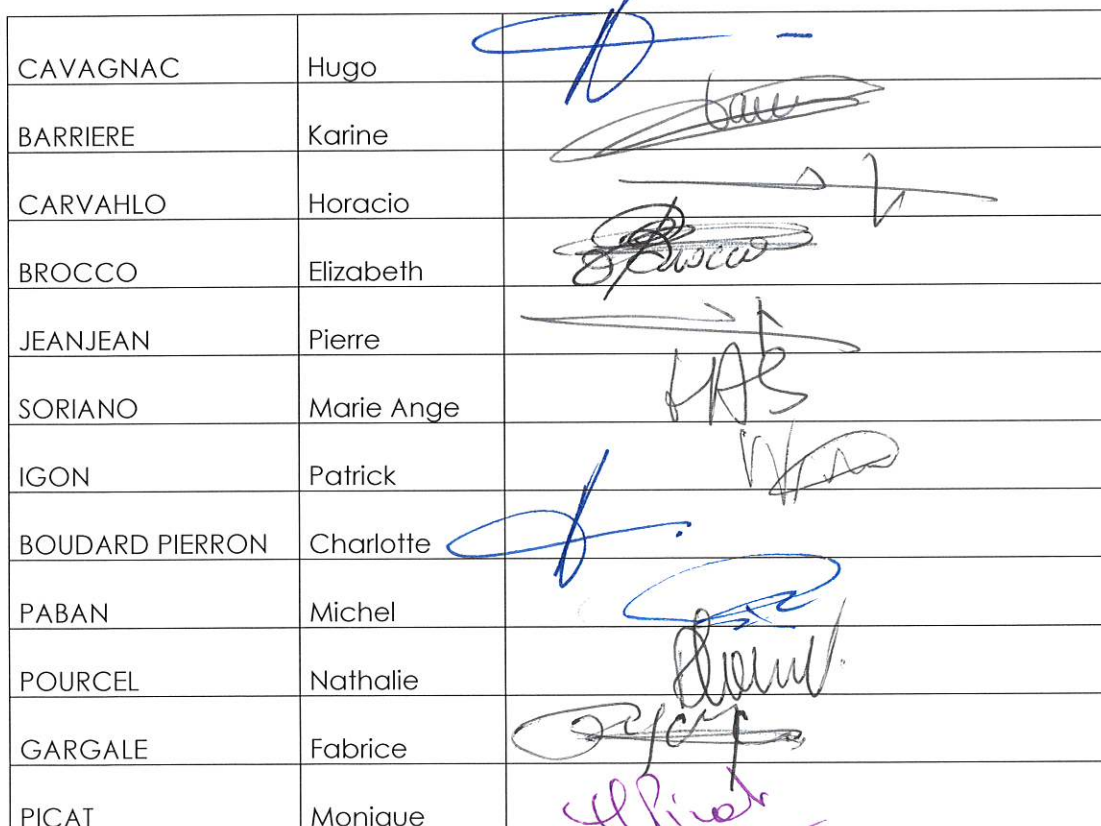 CAVAGNAC Hugo
BARRIERE Karine
CARVAHLO Horacio
BROCCO Elizabeth Brocco
JEANJEAN Pierre
SORIANO Marie Ange MAS
IGON Patrick
BOUDARD PIERRON Charlotte
PABAN Michel
POURCEL Nathalie
GARGALE Fabrice
PICAT Monique Picat